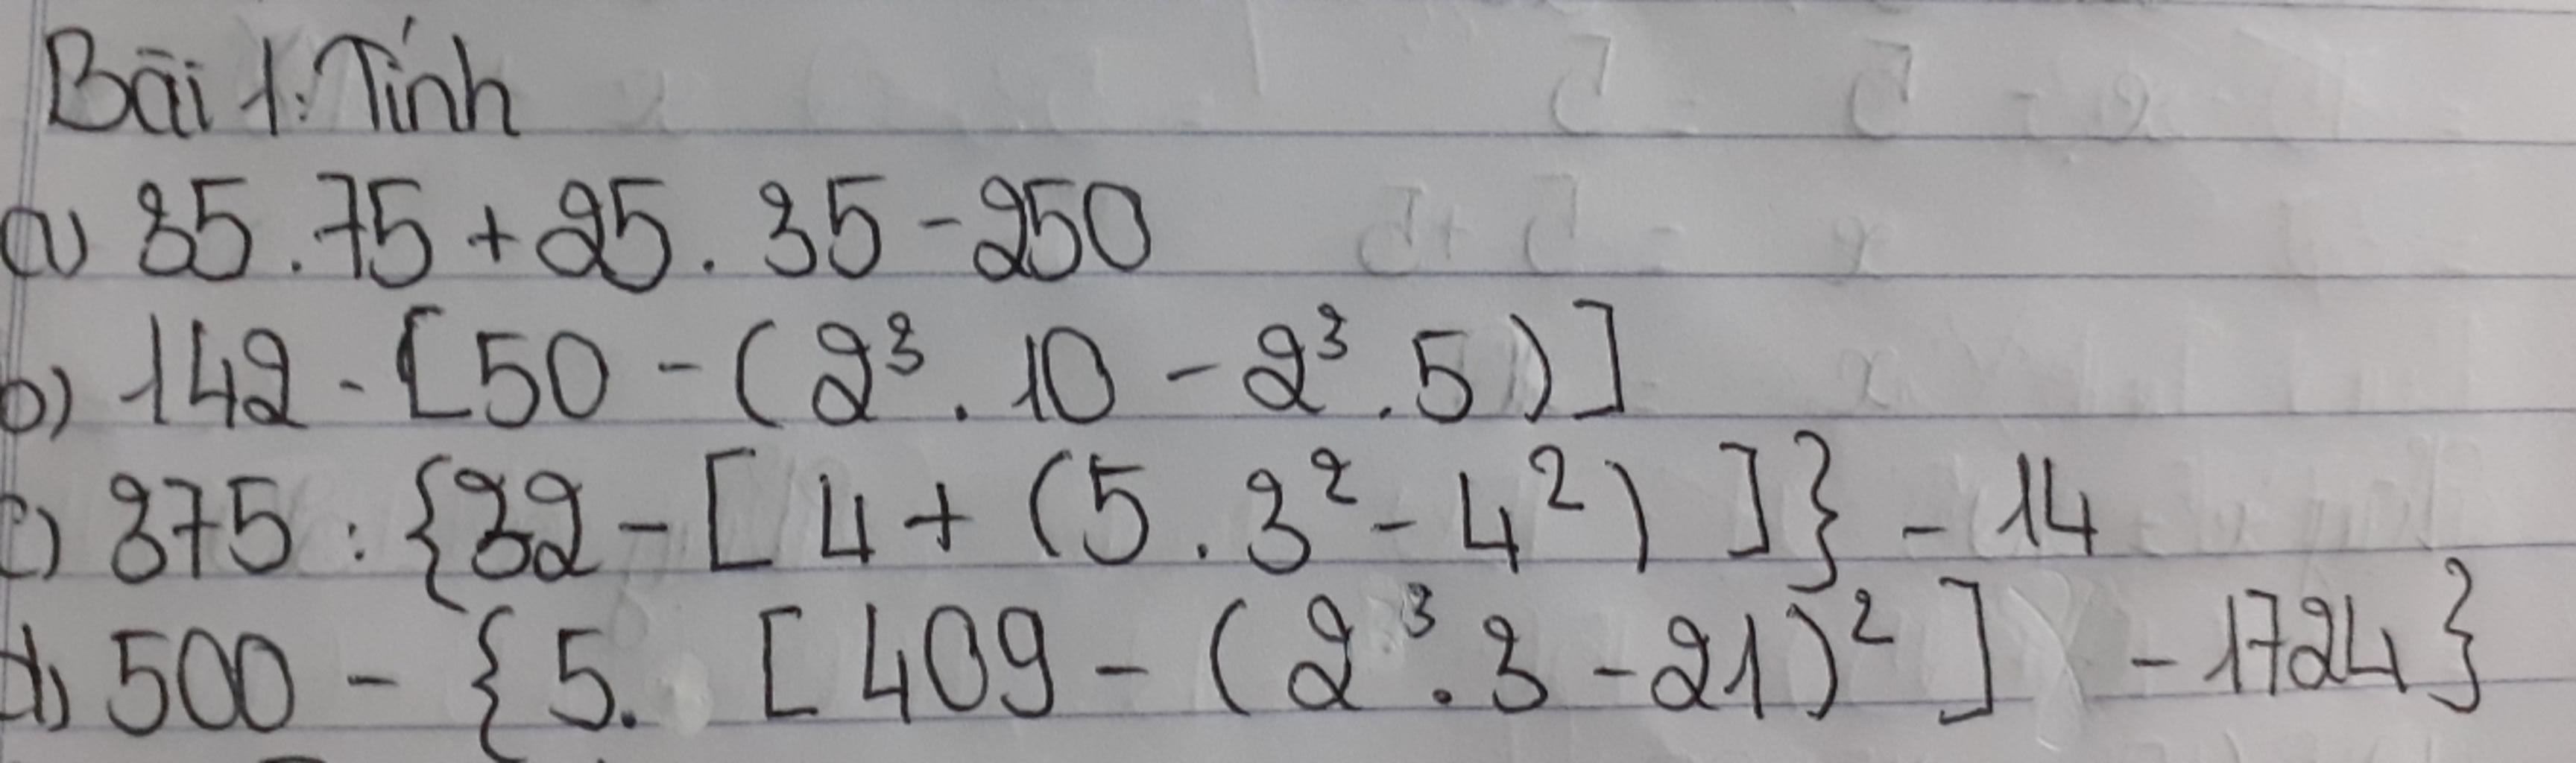 Bài 1: Tính
a) 35 . 75 + 25 . 35 - 250
b) 142 - [50 - (2³ . 10 - 2³ . 5)]
c) 375 : {32 - [4 + (5 . 3² - 4²)]} - 14
d) 500 - {5. [409 - (2³ . 3 - 21)²] - 1724}